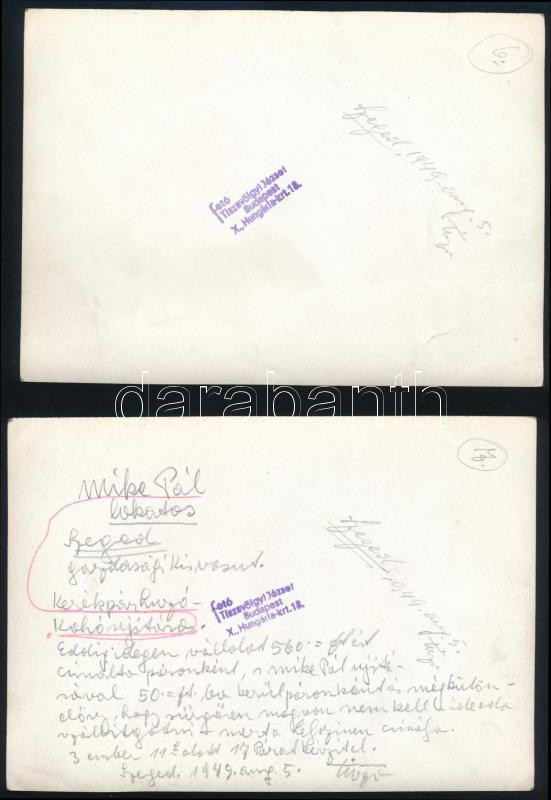 6.
Szeged, 1949. aug. 5.
Fotó
Tiszavölgyi József
Budapest
X., Hungária-krt. 18.
darabanth
Mike Pál
lakatos
Szeged
gazdasági kisvasut.
Kerékpárhuzó-
Kohó ujitása.
Fotó
Tiszavölgyi József
Budapest
X., Hungária-krt. 18.
Szeged, 1949. aug. 5.
Eddig idegen vállalat 560.= ft-ért
csinálta páronként, s Mike Pál ujitá-
sával 50.= ft.ba kerül páronként és mégkülön-
előny, hogy sürgősen magvon nem kell ide-oda
szállitgatni - mert a helyszinen csinálja.
3 ember 11 alatt 17 Párat készitel.
Szeged. 1949. aug. 5.